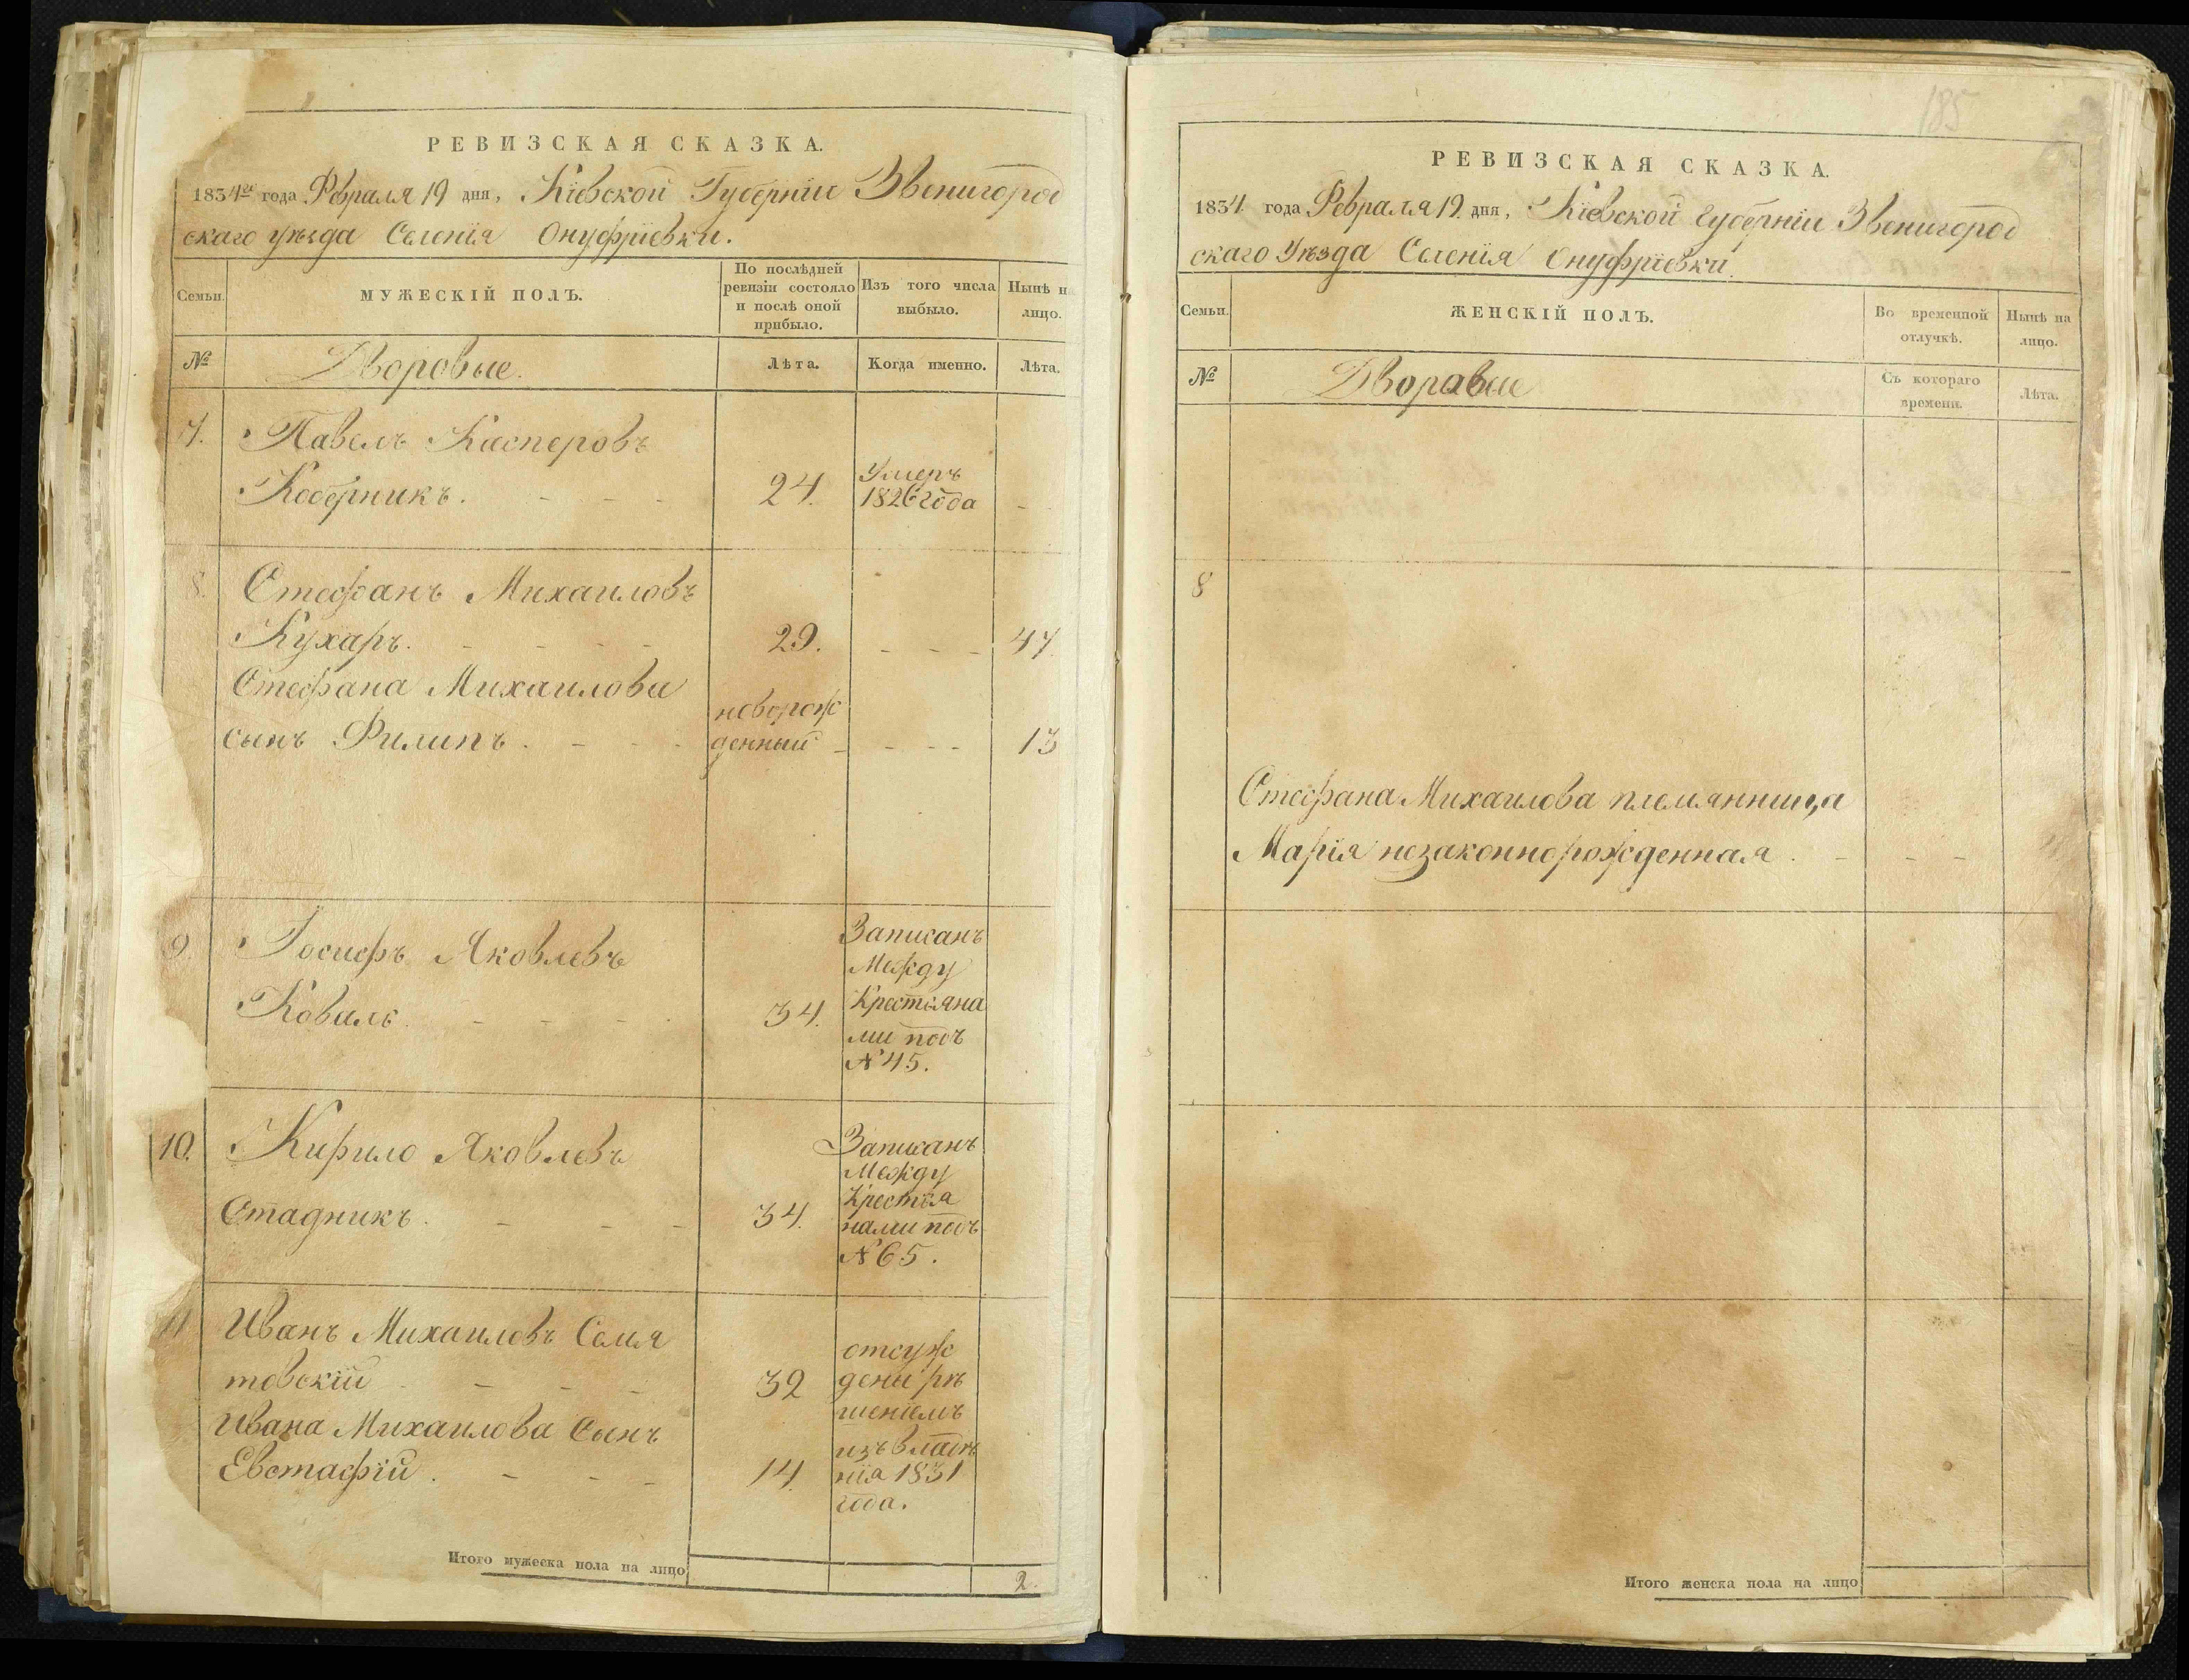 РЕВИЗСКАЯ СКАЗКА.
1834го года Февраля 19 дня, Кіевской Губерніи Звенигород
скаго уѣзда Селенія Онуфріевки.
Семьи.
МУЖЕСКІЙ ПОЛЪ.
По послѣдней ревизіи состояло и послѣ оной прибыло.
Изъ того числа выбыло.
Нынѣ н лицо.
№
Дворовые.
Лѣта.
Когда именно.
Лѣта.
7. Павелъ Касперовъ
Коберникъ. 24. Умеръ 1826 года
8. Стефанъ Михаиловъ
Кухаръ. 29. 47.
Стефана Михаилова
сынъ Филипъ. новорож
денный 13
9. Іосифъ Яковлевъ
Коваль. 34.
Записанъ
Между
Крестьяна
ми подъ
№ 45.
10. Кирило Яковлевъ
Стадникъ. 34.
Записанъ
Между
Крестья
нами подъ
№ 65.
11 Иванъ Михаиловъ Семя
товскій 32
Ивана Михаилова Сынъ
Евстафій. 14.
отсуж
дены рѣ
шеніемъ
изъ владѣ
нія 1831
года.
Итого мужеска пола на лицо 2.
185
РЕВИЗСКАЯ СКАЗКА.
1834. года Февраля 19. дня, Кіевской Губерніи Звенигород
скаго Уѣзда Селенія Онуфріевки.
Семьи.
ЖЕНСКІЙ ПОЛЪ.
Во временной отлучкѣ.
Нынѣ на лицо.
№
Дворавые
Съ котораго времени.
Лѣта.
8
Стефана Михаилова племянница
Марія незаконнорожденная
Итого женска пола на лицо